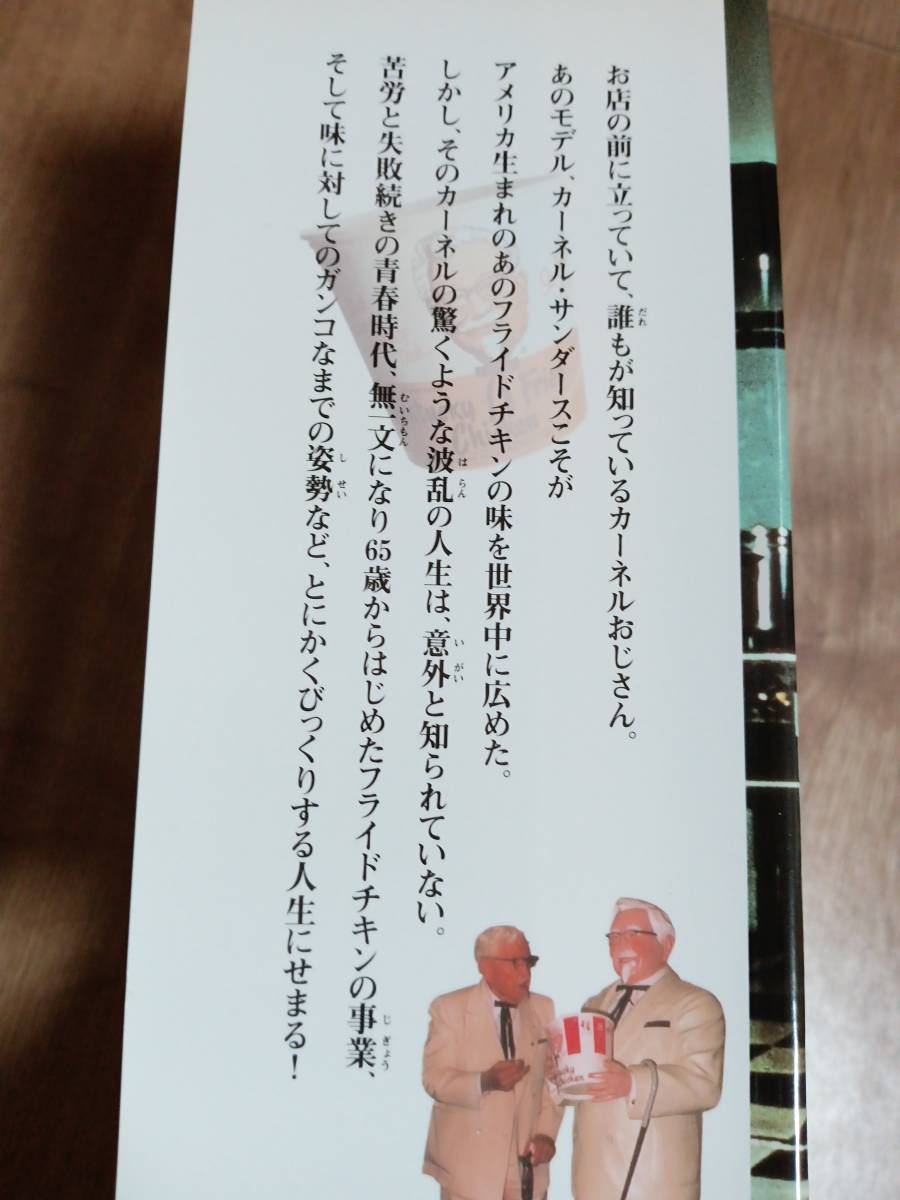 お店の前に立っていて、誰もが知っているカーネルおじさん。
あのモデル、カーネル・サンダースこそが
アメリカ生まれのあのフライドチキンの味を世界中に広めた。
しかし、そのカーネルの驚くような波乱の人生は、意外と知られていない。
苦労と失敗続きの青春時代、無一文になり65歳からはじめたフライドチキンの事業、
そして味に対してのガンコなまでの姿勢など、とにかくびっくりする人生にせまる！